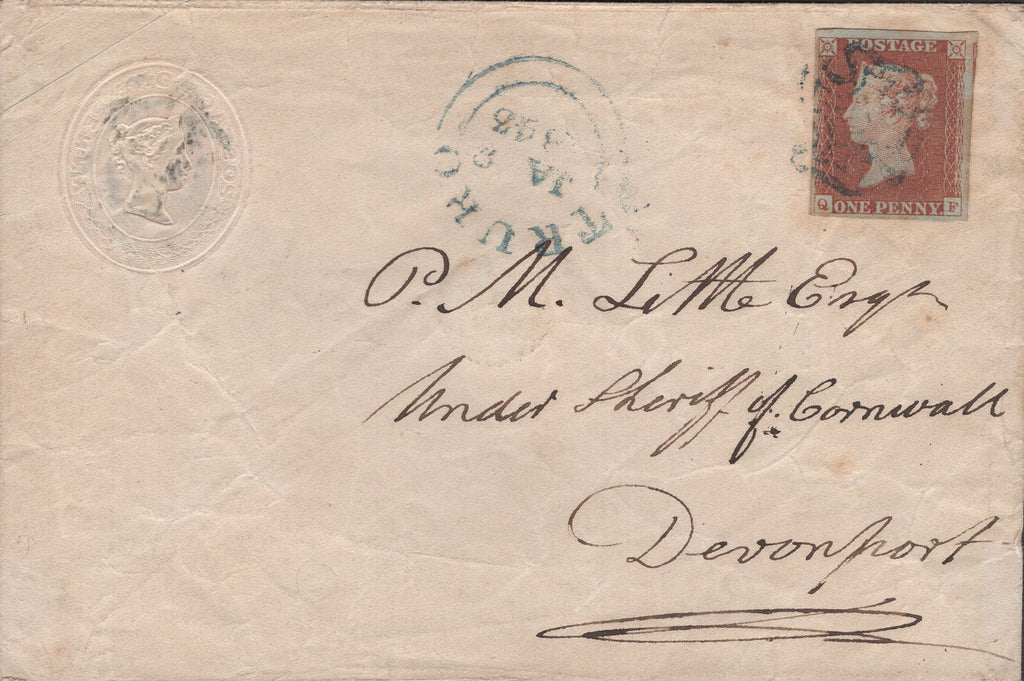 POSTAGE
Q ONE PENNY F
TRURO
JA 9
P. M. Little Esqr
Under Sheriff of Cornwall
Devonport